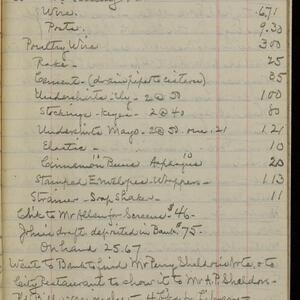 Wire. .671
Posts. 9.30
Poultry Wire 3.00
Rake - 25
Cement - (drain pipe to cistern) 85
Undershirts Lily - 2 @ 50 1.00
Stockings - 2 @ 40 80
Undershirts Mayo - 2 @ 50. one .21 1.21
Elastic - 10
Cinnamon Buns 10 20
Stamped Envelopes - Wrappers - 1.13
Strainer - Soap Shaker - 11
Ch'k to Mr Allen for Screens $46 -
John's draft deposited in Bank $75 -
On hand 25.67
Went to Bank to find Mr Perry Sheldon's note, & to
City restaurant to show it to Mr A. P. Sheldon -